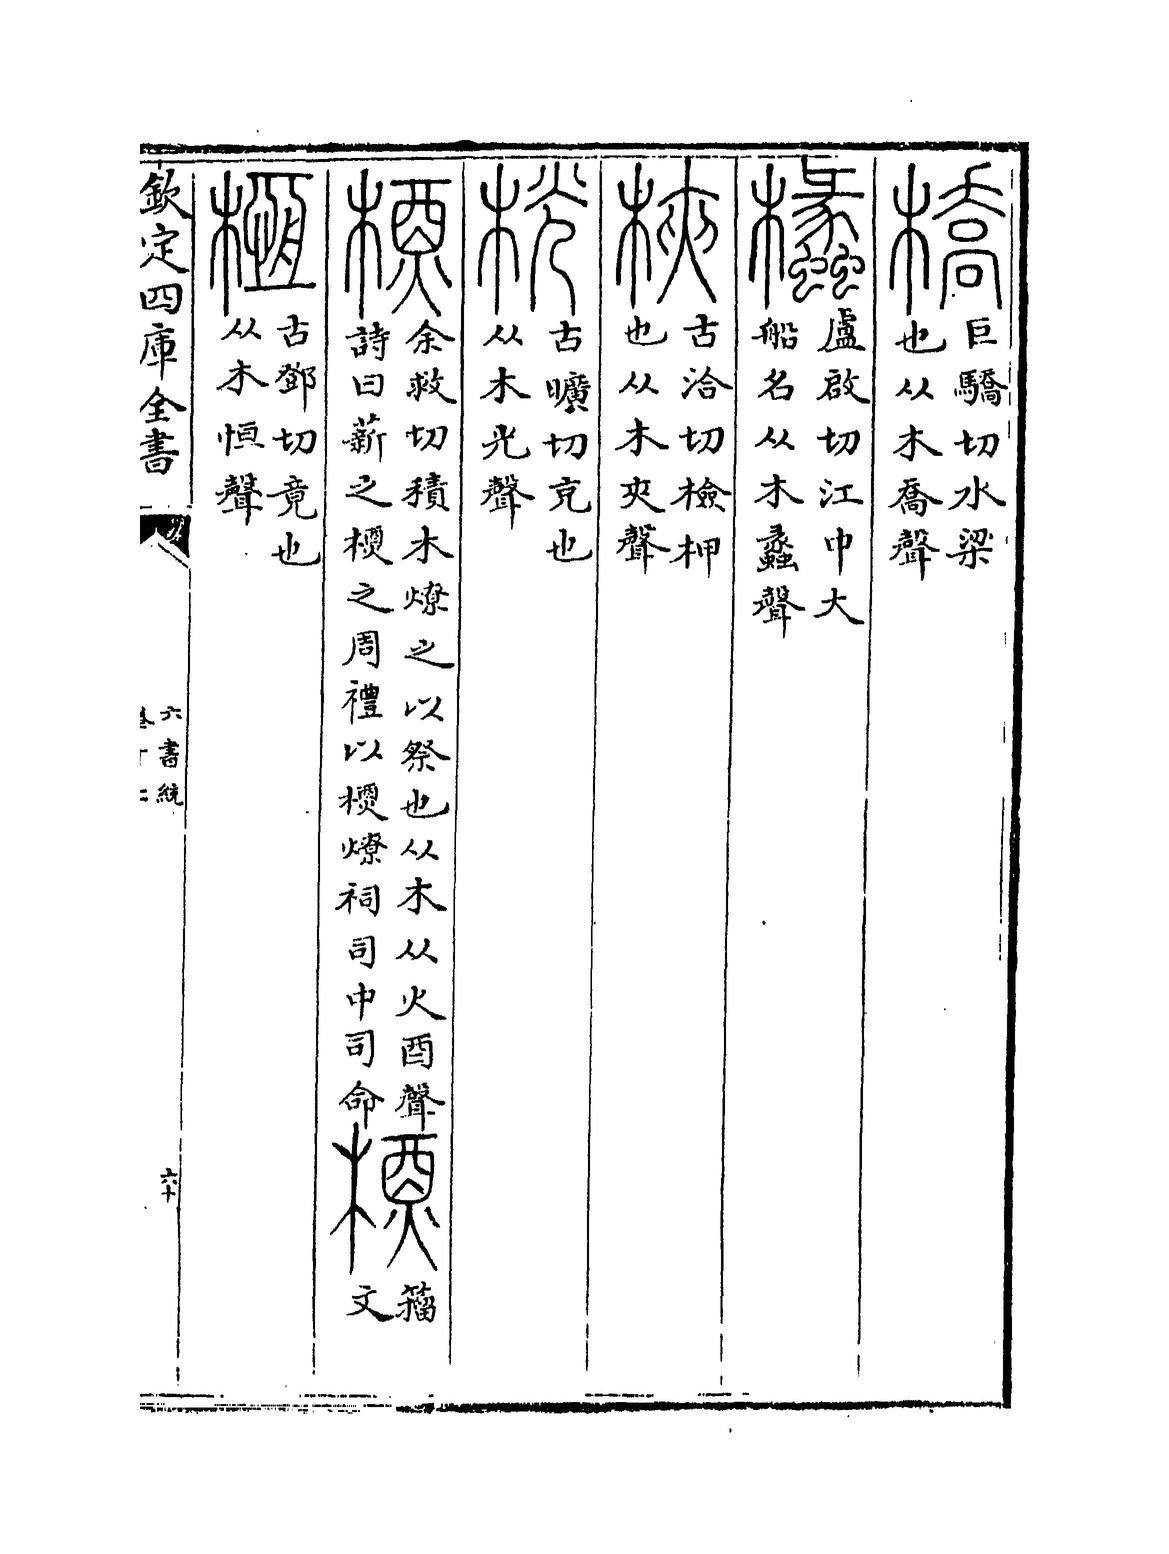 橋
巨驕切水梁
也从木喬聲
欚
盧啟切江中大
船名从木蠡聲
梜
古洽切檢柙
也从木夾聲
桄
古曠切充也
从木光聲
槱
余救切積木燎之以祭也从木从火酉聲
詩曰薪之槱之周禮以槱燎祠司中司命
槱
籀
文
㮓
古鄧切竟也
从木恒聲
欽定四庫全書
六書統
卷十二
六十